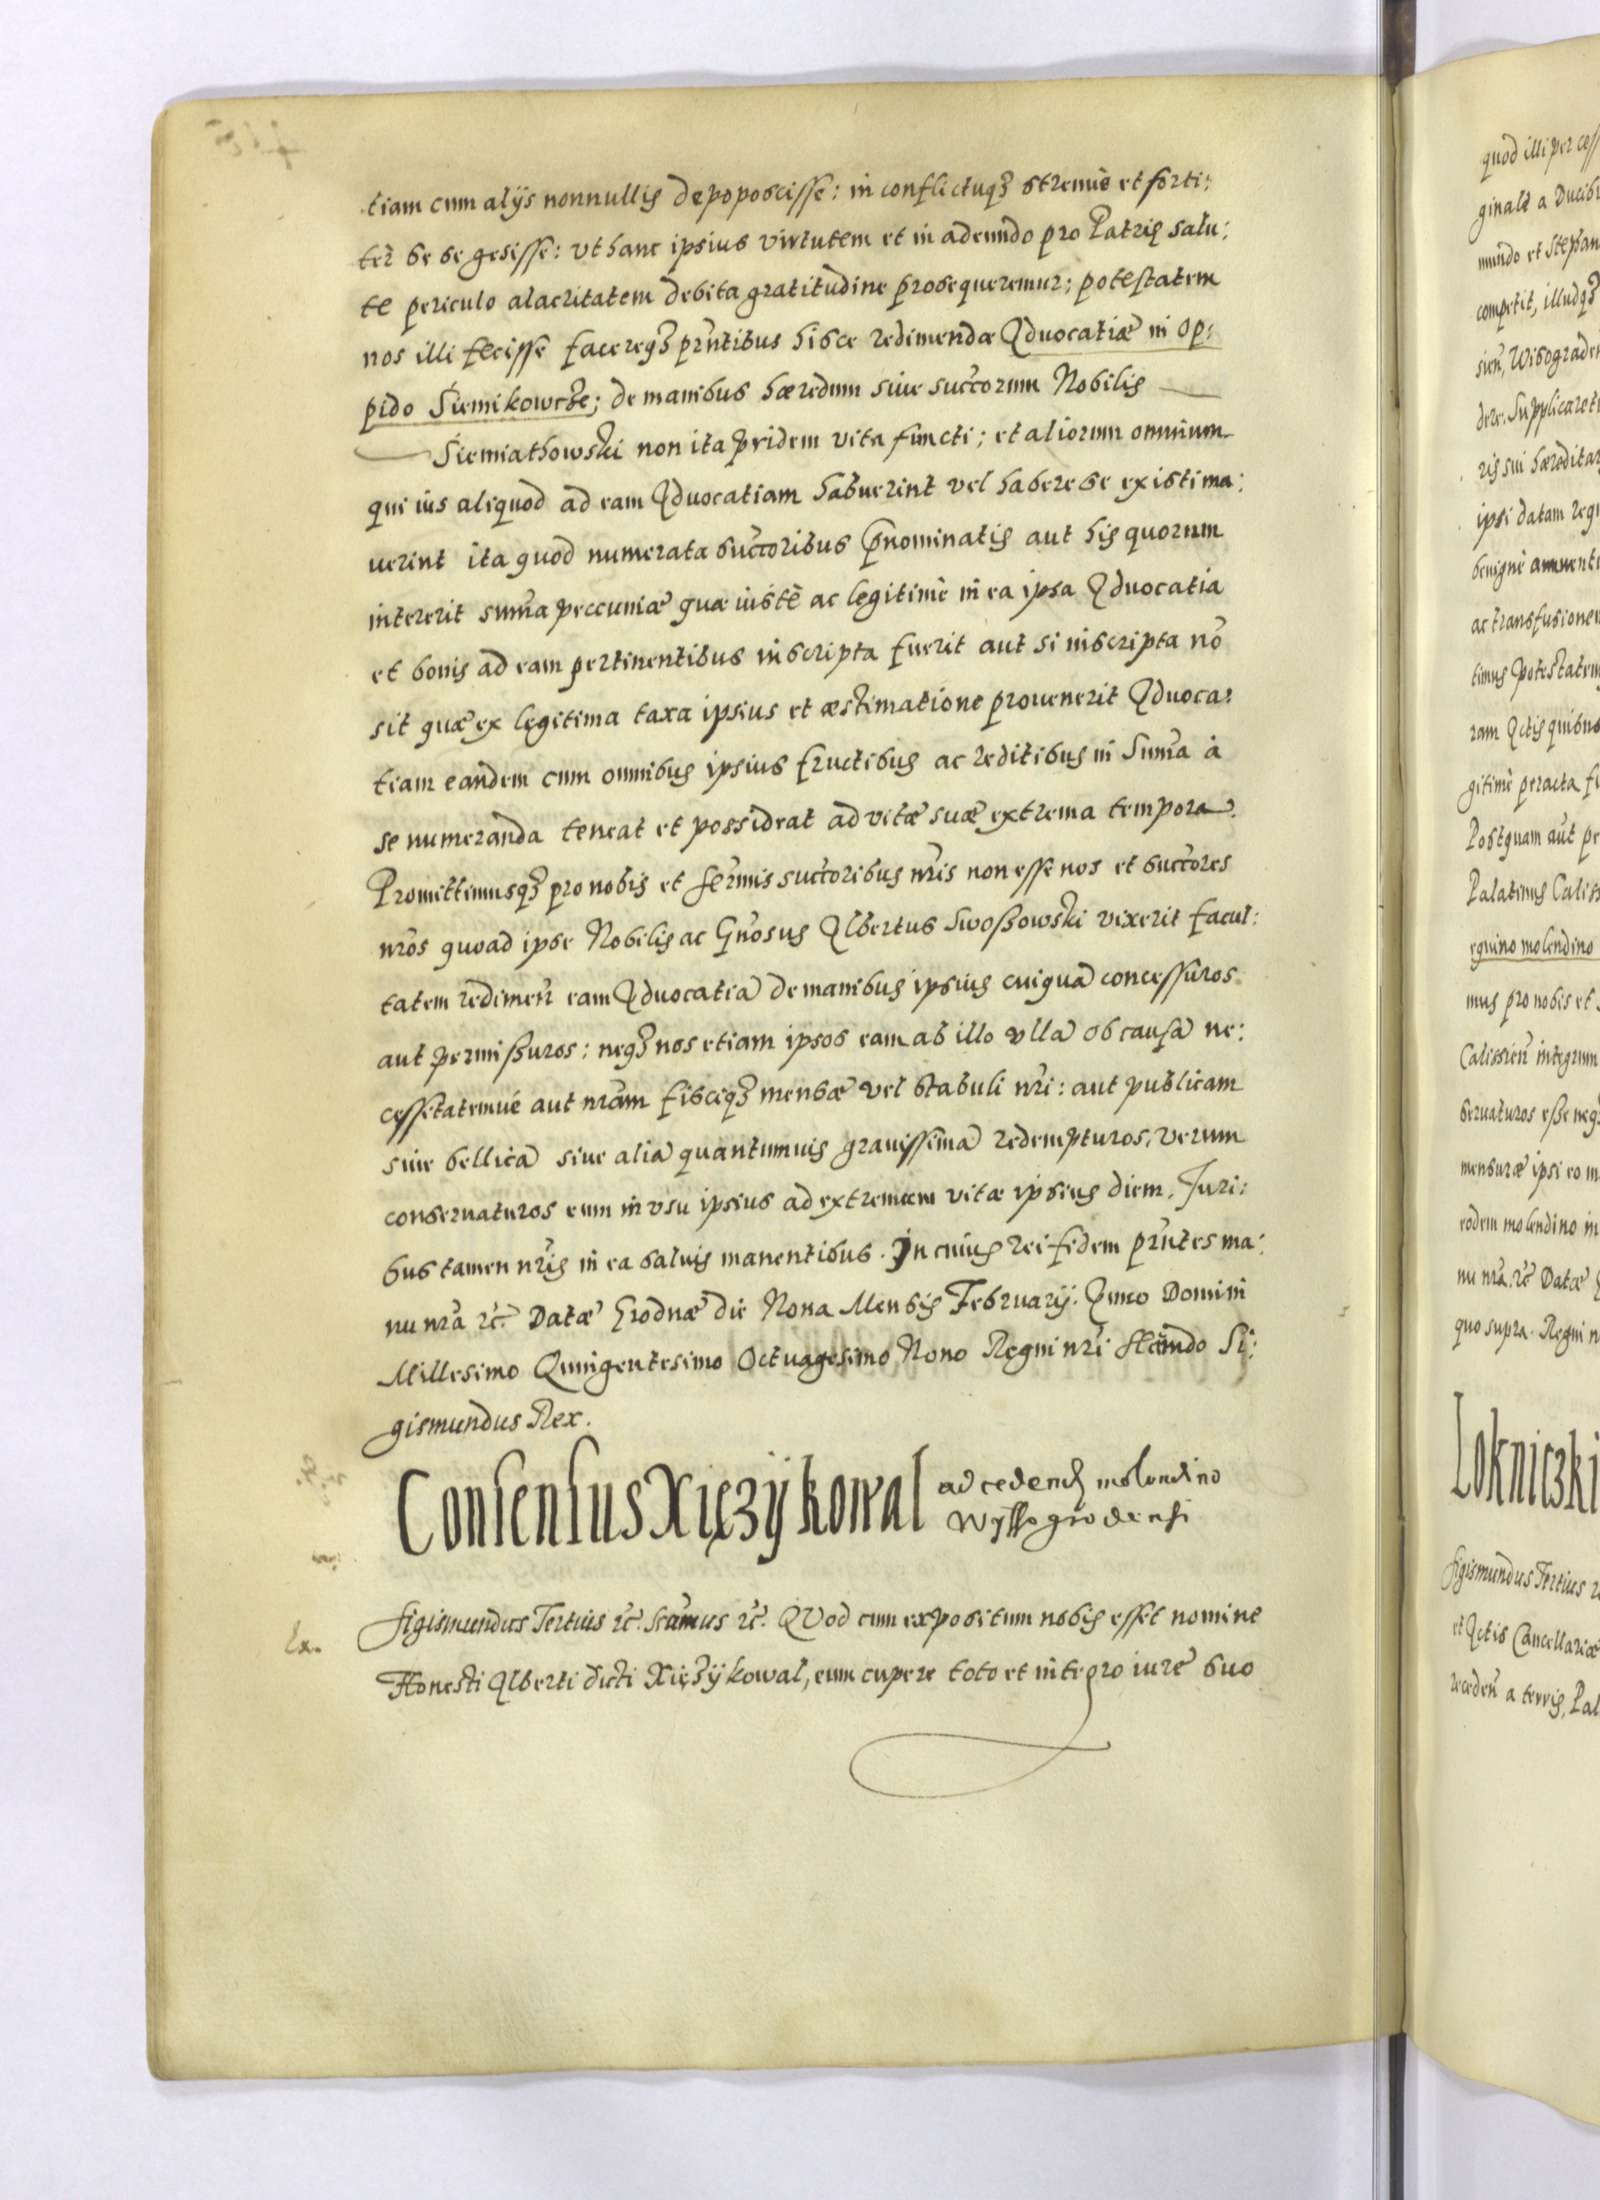 tiam cum alijs nonnullis depoposcisse: in conflictuqȝ strenuè et forti:
ter se se gesisse: vt hanc ipsius virtutem et in adeundo pro Patriȩ salu:
te periculo alacritatem debita gratitudine prosequeremur; potestatem
nos illi fecisse facereqȝ prntibus hisce redimendæ Aduocatiæ in op:
pido Siemikowcze; de manibus hæredum siue succorum Nobilis
Siemiathowski non ita pridem vita functi; et aliorum omnium
qui ius aliquod ad eam Aduocatiam habuerint vel habere se existima:
uerint ita quod numerata succoribus pnominatis aut his quorum
intererit suma peccuniæ quæ iustè ac legitimè in ea ipsa Aduocatia
et bonis ad eam pertinentibus inscripta fuerit aut si inscripta nō
sit quæ ex legitima taxa ipsius et æstimatione prouenerit Aduoca:
tiam eandem cum omnibus ipsius fructibus ac reditibus in suma à
se numeranda teneat et possideat ad vitæ suæ extrema tempora.
Promittimusqȝ pro nobis et sermis succoribus nris non esse nos et succores
nros quoad ipse Nobilis ac Gnosus Albertus Swoszowski vixerit facul:
tatem redimen eam Aduocatiā de manibus ipsius cuiquā concessuros
aut permissuros: neqȝ nos etiam ipsos eam ab illo vllā ob causā ne:
cessitatemué aut nram fisciqȝ mensæ vel stabuli nri: aut publicam
siue bellicā siue aliā quantumuis grauissimā redempturos, verum
conseruaturos eum in vsu ipsius ad extremum vitæ ipsius diem. Juri:
bus tamen nris in ea saluis manentibus. In cuius rei fidem prntes ma:
nu nrā rc. Datæ Grodnæ die Nona Mensis Februarij. Anno Domini
Millesimo Quingentesimo Octuagesimo Nono Regni nri secundo Si:
gismundus Rex.
Consensus Xięzÿ kowal ad cedend molendino
Wyssogrodensi
Ex. Sigismundus Tertius rc. scamus rc. QVod cum expositum nobis esset nomine
Honesti Alberti dicti Xięzÿ kowal, eum cupere toto et integro iure suo
quod illi per cess
ginale a Ducibu
mundo et Stephan
competit, illudqȝ
sien, Wisograden
dere. Supplicaret
ris sui hæreditar
ipsi datam regi
benignè annuent
ac transfusionem
timus potestatem
ram Actis quibus
gitimè peracta fu
Postquam aut pe
Palatinus Caliss
equino molendino
mus pro nobis et
Calissien integrum
seruaturos esse neqȝ
mensuræ ipsi eo m
eodem molendino in
nu nrā. rc Datæ
quo supra. Regni n
Lokniczki
Sigismundus Tertius r
et Actis Cancellariæ
receden a terris, Pal